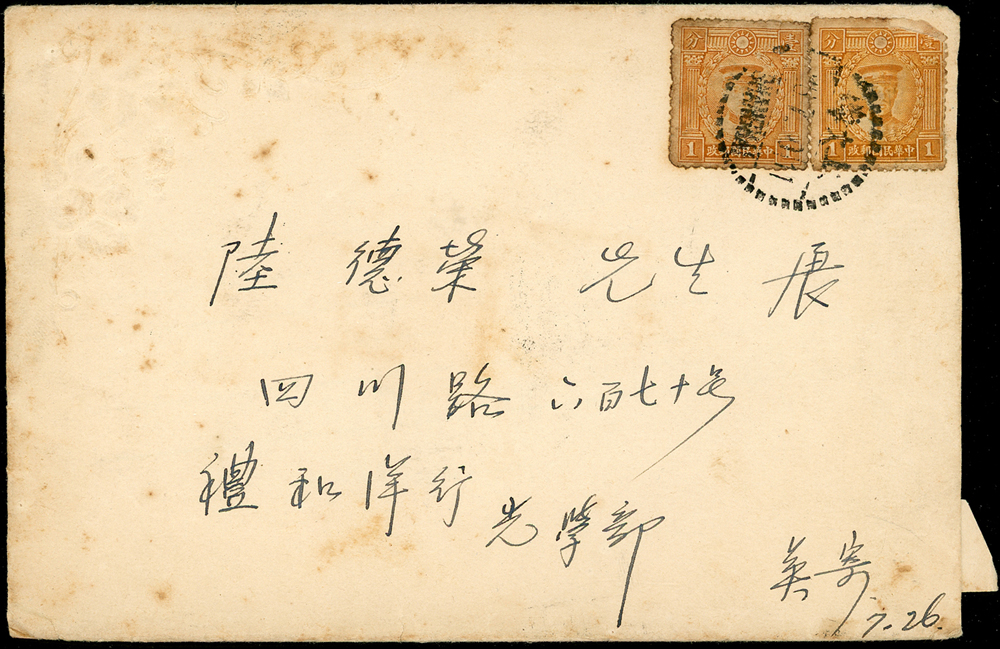 分 壹 分 壹
1 政郵國民華中 1 1 政郵國民華中 1
陸德榮 先生 展
四川路 六百七十号
禮和洋行
光學部
英寄
7-26.